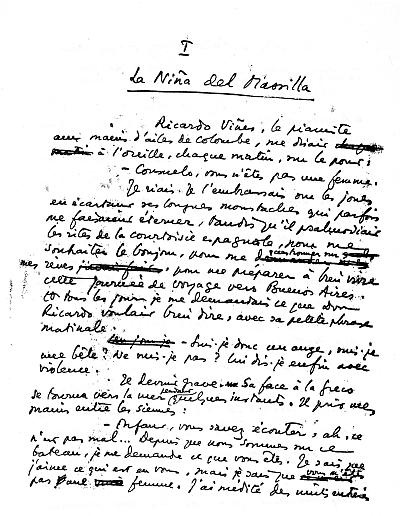 I
La Niña del Massilia
Ricardo Viñes, le pianiste
aux mains d'ailes de colombe, me disait
à l'oreille, chaque matin, sur le pont:
- Consuelo, vous n'êtes pas une femme.
Je riais. Je l'embrassais sur les joues
en écartant ses longues moustaches qui parfois
me faisaient éternuer, tandis qu'il psalmodiait
les rites de la courtoisie espagnole, pour me
souhaiter le bonjour, pour me
mes rêves, pour me préparer à bien vivre
cette journée de voyage vers Buenos Aires.
Et tous les jours je me demandais ce que don
Ricardo voulait bien dire, avec sa petite phrase
matinale.
- Suis-je donc un ange, suis-je
une bête? Ne suis-je pas? lui dis-je enfin avec
violence.
Il devint grave. Sa face à la Greco
se tourna vers la mer pendant quelques instants. Il prit mes
mains entre les siennes:
- Enfant, vous savez écouter, ah, ce
n'est pas mal... Depuis que nous sommes sur ce
bateau, je me demande ce que vous êtes. Je sais que
j'aime ce qui est en vous, mais je sais que vous n'êtes
pas une femme. J'ai médité des nuits entières